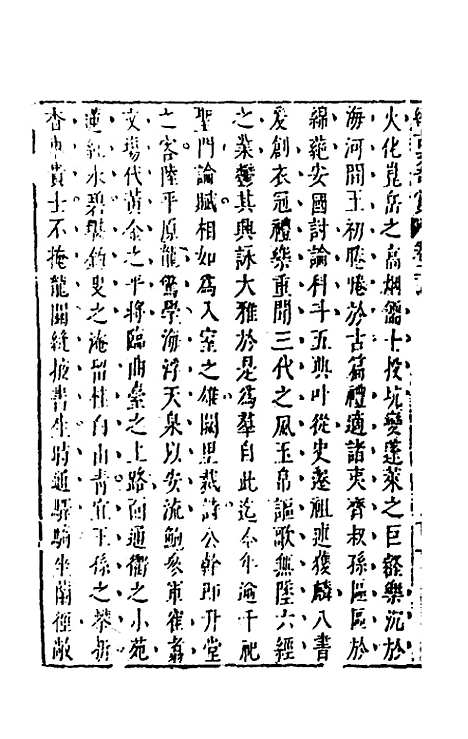 火化崑岳之高烟儒士投坑變蓬萊之巨壑樂沉於
海河間王初睠惓於古篇禮適諸夷齊叔孫區區於
綿蕝安國討論科斗五典叶從史遷祖述獲麟八書
爰創衣冠禮樂重聞三代之風玉帛謳歌無墜六經
之業鬱其興詠大雅於是為羣自此迄今年逾千祀
聖門論賦相如為入室之雄闕里裁詩公幹即升堂
之客陸平原龍驚學海浮天泉以安流鮑參軍雀翥
文場代黃金之平埒臨曲臺之上路面通衢之小苑
蓮紅水碧堪釣叟之淹留桂白山青宜王孫之攀折
杏市貴士不掩龍關縫掖書生時通驛騎坐蘭徑敞